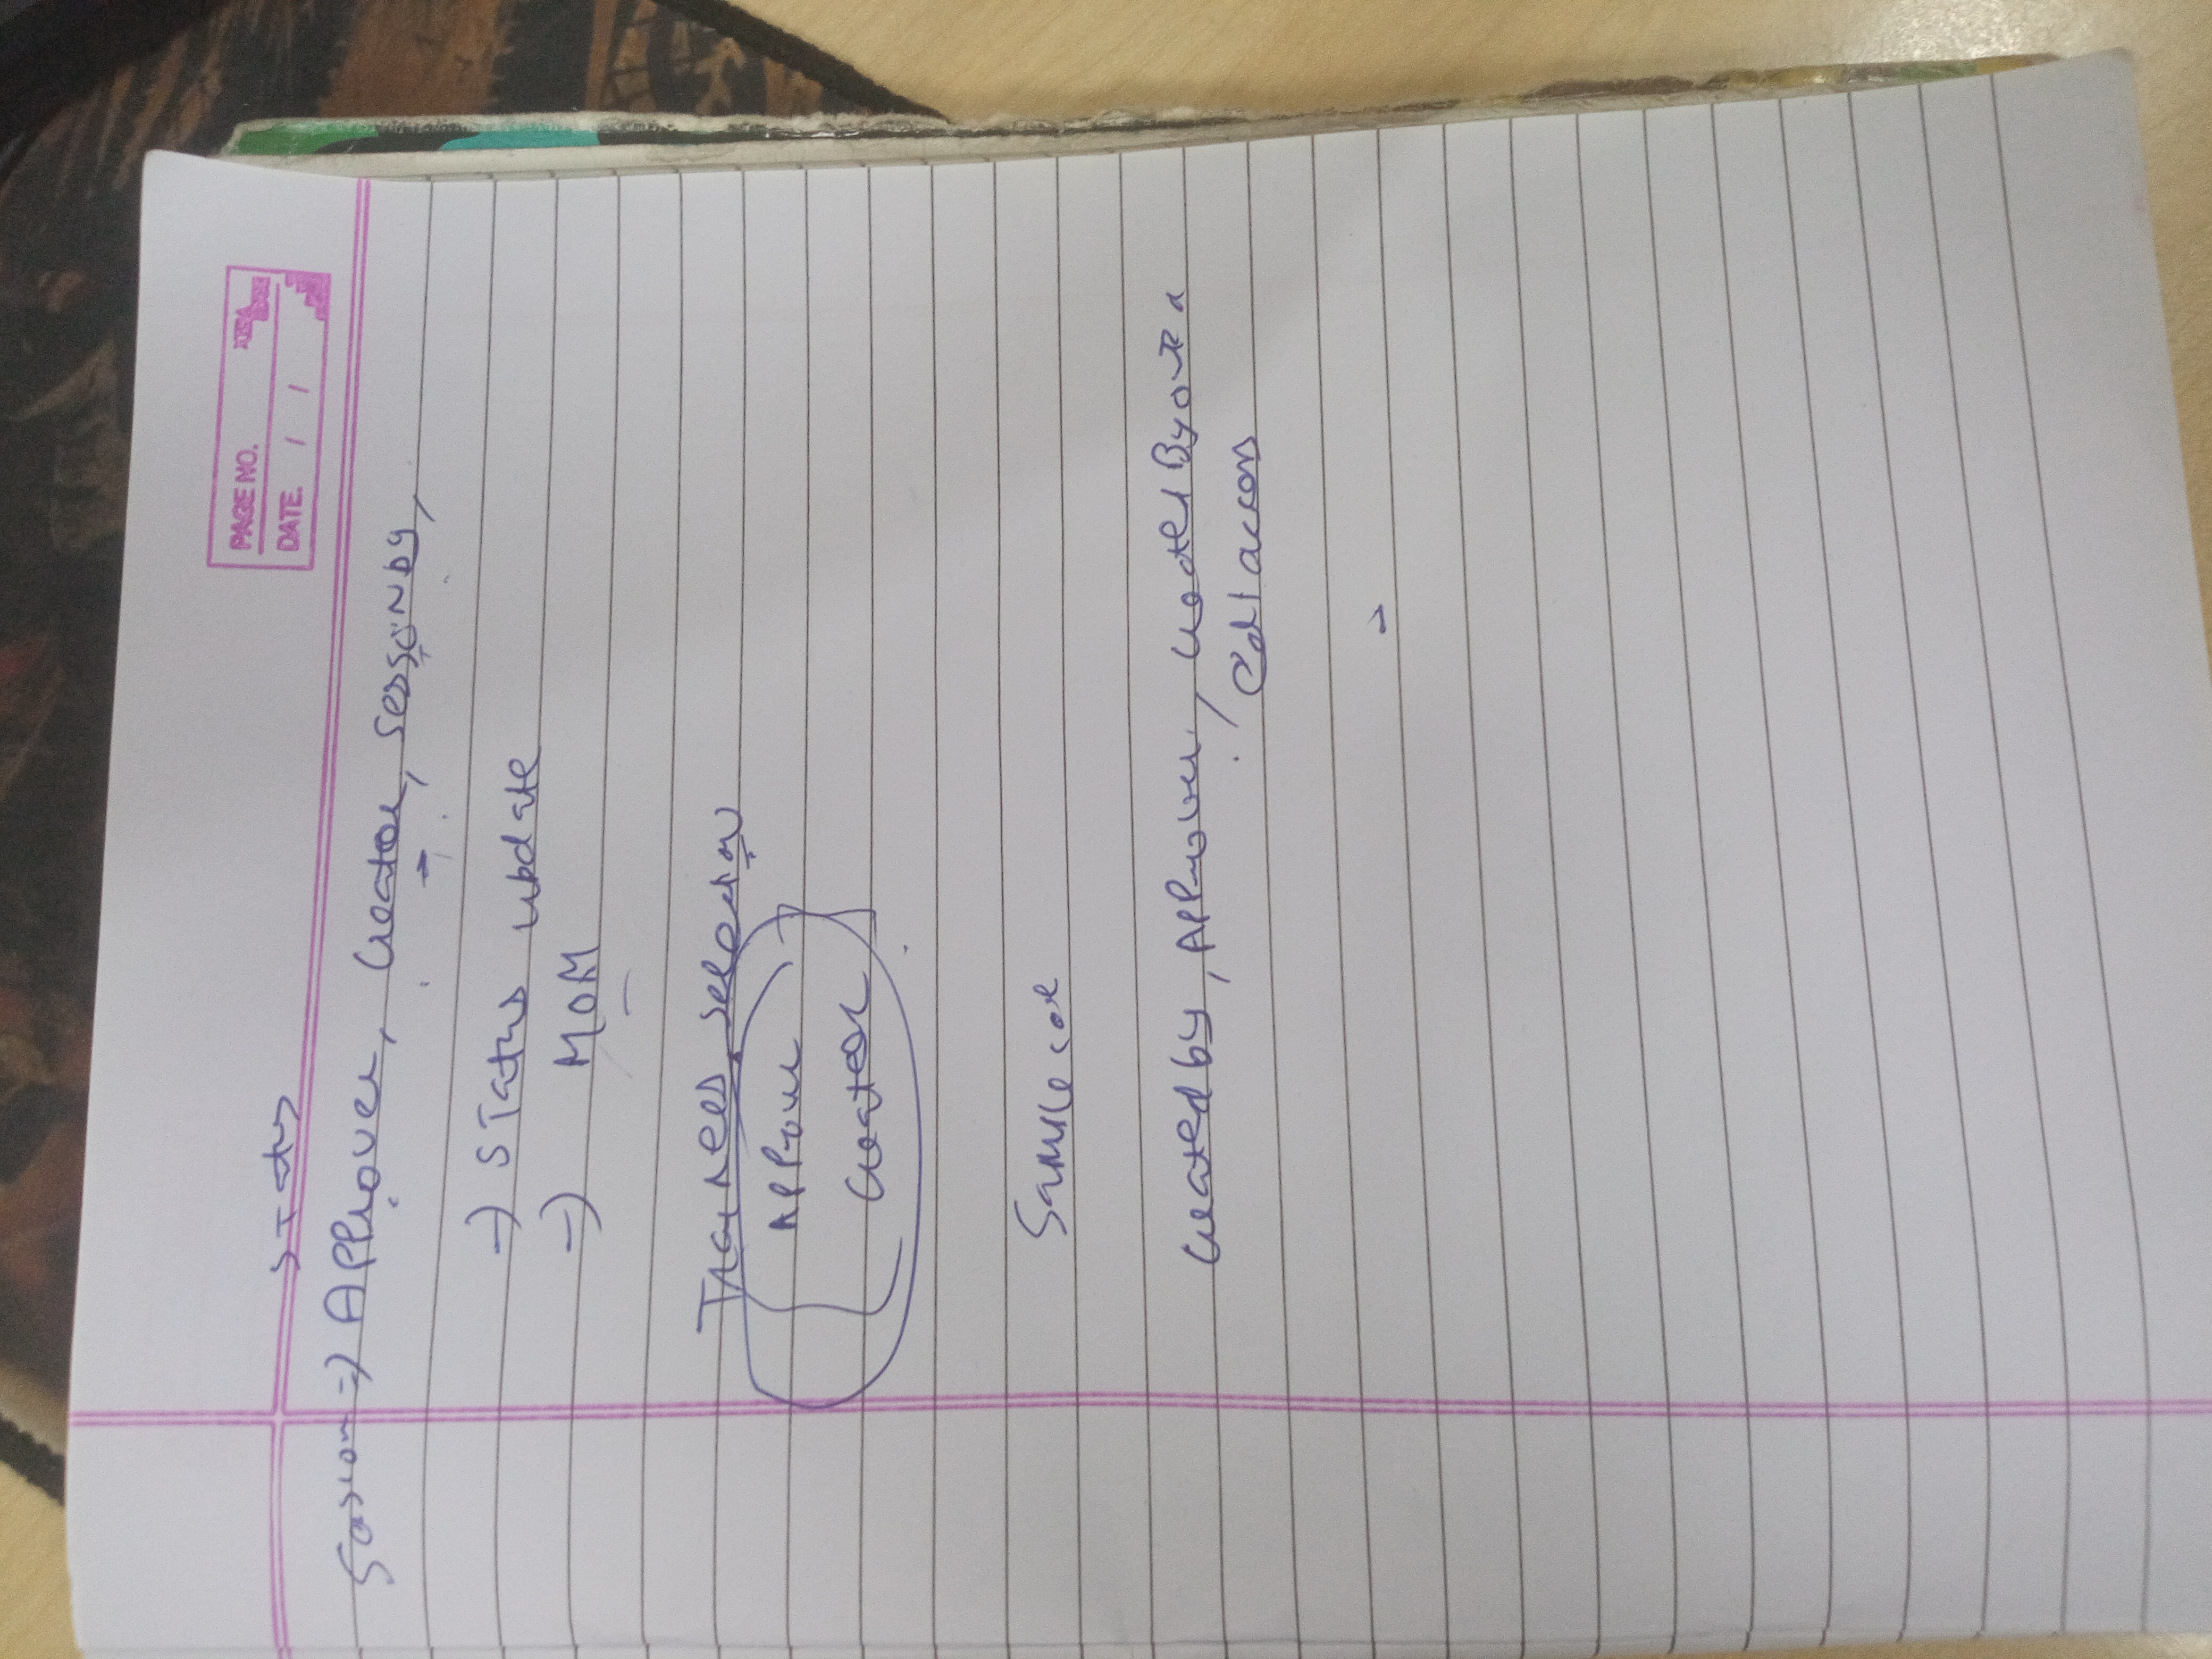 PAGE NO.
DATE. / /
Session => Approver, Creator, sessionby,
-> Status update
-> MOM
Trainees selection
Approver
Creator
Sample
Created by, Approver, CreatedBy
Edit access